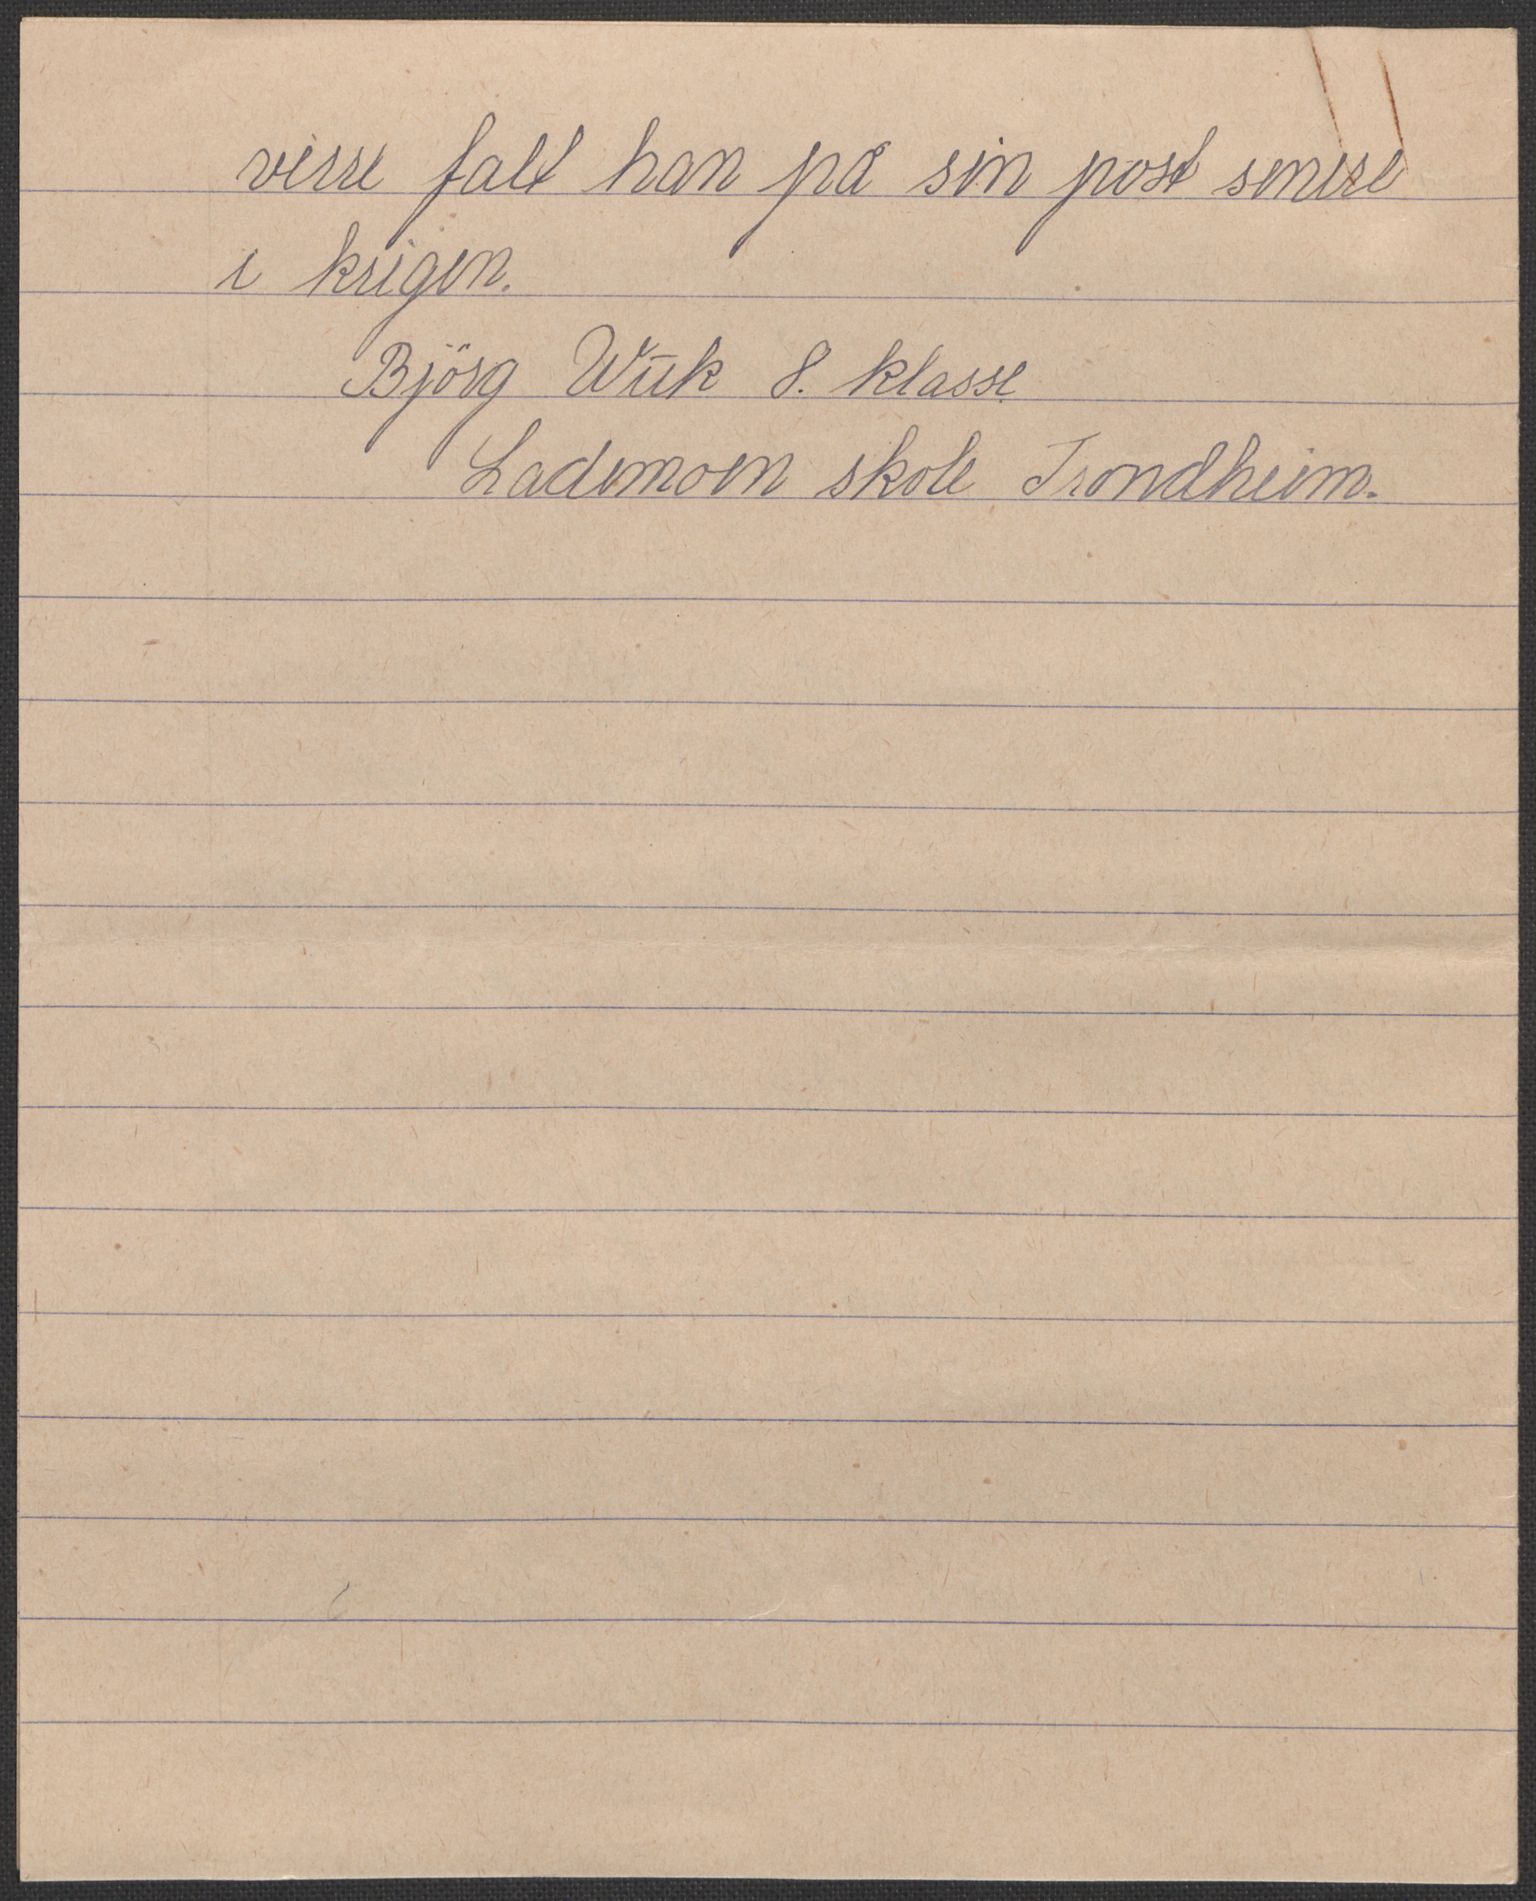 verre falt han på sin post senere
i krigen.
Björg Wiik 8. klasse
Lademoen skole Trondheim.